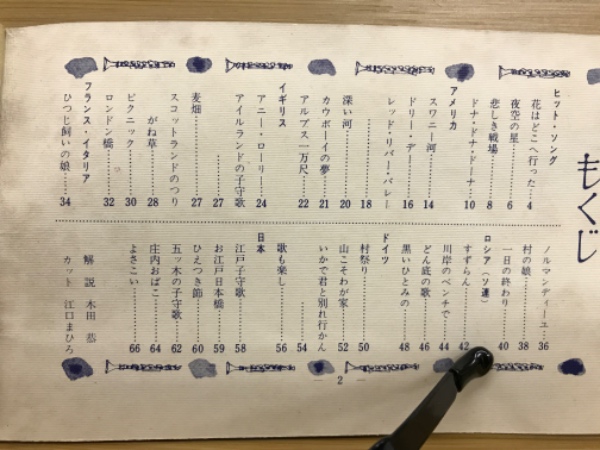 もくじ
ヒット・ソング
花はどこへ行った……4
夜空の星……6
悲しき戦場……8
ドナ・ドナ・ドーナ……10
アメリカ
スワニー河……14
ドリー・デー……16
レッド・リバー・バレー……18
深い河……20
カウボーイの夢……21
アルプス一万尺……22
イギリス
アニー・ローリー……24
アイルランドの子守歌……27
麦畑……27
スコットランドのつりがね草……28
ピクニック……30
ロンドン橋……32
フランス・イタリア
ひつじ飼いの娘……34
ノルマンディーユ…36
村の娘……38
一日の終わり……40
ロシア(ソ連)
すずらん……42
川岸のベンチで……44
どん底の歌……46
黒いひとみの……48
ドイツ
村祭り……50
山こそわが家……52
いかで君と別れ行かん……54
歌も楽し……56
日本
江戸子守歌……58
お江戸日本橋……59
ひえつき節……60
五ッ木の子守歌……62
庄内おばこ……64
よさこい……66
解説 木田 恭
カット 江口まひろ
— 2 —